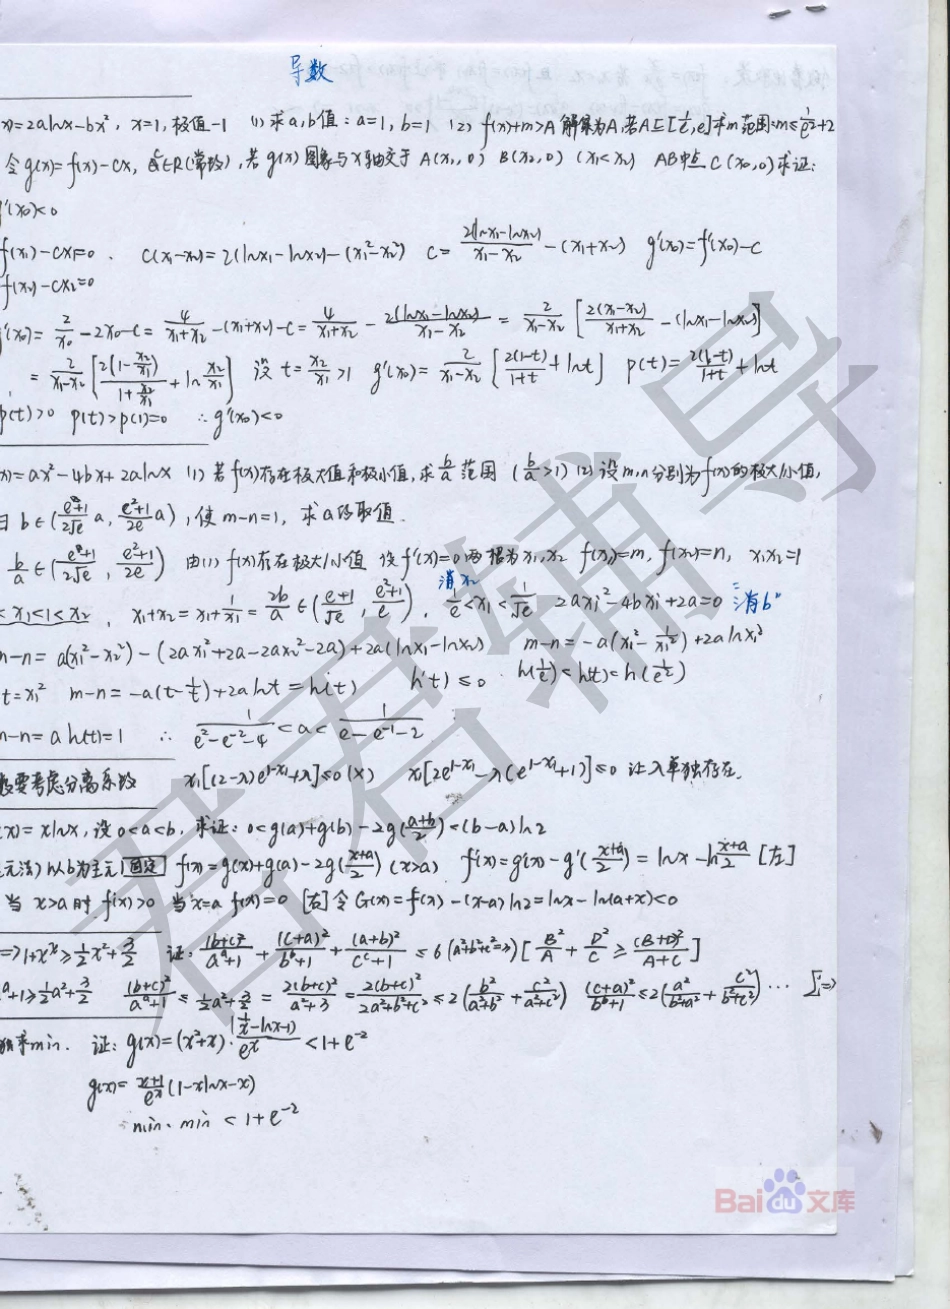 导数
x)=2alnx-bx², x=1,极值-1 (1) 求a,b值:a=1,b=1 (2) f(x)+m>A 解集为A,若A⊆[1/e,e]求m范围:m≤1/e²+2
令g(x)=f(x)-cx, c∈R(常数),若g(x)图象与x轴交于A(x₁,0) B(x₂,0) (x₁<x₂) AB中点C(x₀,0)求证:
g'(x₀)<0
f(x₁)-cx₁=0 . c(x₁-x₂)=2(lnx₁-lnx₂)-(x₁²-x₂²) c=2(lnx₁-lnx₂)/(x₁-x₂)-(x₁+x₂) g'(x₀)=f'(x₀)-c
f(x₂)-cx₂=0
'(x₀)=2/x₀-2x₀-c=4/(x₁+x₂)-(x₁+x₂)-c=4/(x₁+x₂)-2(lnx₁-lnx₂)/(x₁-x₂)=2/(x₁-x₂)[2(x₁-x₂)/(x₁+x₂)-(lnx₁-lnx₂)]
=2/(x₁-x₂)[2(1-x₂/x₁)/(1+x₂/x₁)+ln x₂/x₁] 设t=x₂/x₁>1 g'(x₀)=2/(x₁-x₂)[2(1-t)/(1+t)+lnt] p(t)=2(1-t)/(1+t)+lnt
p'(t)>0 p(t)>p(1)=0 ∴g'(x₀)<0
x)=ax²-4bx+2alnx (1) 若f(x)存在极大值和极小值,求b/a范围 (b/a>1) (2) 设m,n分别为f(x)的极大/小值,
∃b∈((e+1)/2√e a, (e²+1)/2e a),使m-n=1,求a的取值.
b/a∈((e+1)/2√e, (e²+1)/2e) 由(1) f(x)存在极大/小值 设f'(x)=0两根为x₁,x₂ f(x₁)=m, f(x₂)=n, x₁x₂=1
消x₂
<x₁<1<x₂ , x₁+x₂=x₁+1/x₁=2b/a∈((e+1)/√e, (e²+1)/e), 1/e<x₁<1/√e 2ax₁²-4bx₁+2a=0 "消b"
m-n=a(x₁²-x₂²)-(2ax₁²+2a-2ax₂²-2a)+2a(lnx₁-lnx₂) m-n=-a(x₁²-1/x₁²)+2alnx₁²
t=x₁² m-n=-a(t-1/t)+2alnt=h(t) h'(t)≤0. h(1/e)<h(t)<h(1/e²)
m-n=ah(t)=1 ∴ 1/(e²-e⁻²-4)<a<1/(e-e⁻¹-2)
要考虑分离系数 x₁[(2-λ)e^(1-x₁)+λ]≤0 (×) x₁[2e^(1-x₁)-λ(e^(1-x₁)+1)]≤0 让λ单独存在.
(x)=xlnx,设0<a<b,求证:0<g(a)+g(b)-2g((a+b)/2)<(b-a)ln2
元法) 以b为主元 固定 f(x)=g(x)+g(a)-2g((x+a)/2) (x>a) f'(x)=g'(x)-g'((x+a)/2)=lnx-ln(x+a)/2 [左]
当x>a时 f'(x)>0 当x=a f(x)=0 [右]令G(x)=f(x)-(x-a)ln2=lnx-ln(a+x)<0
=>1+x^x≥1/2x²+3/2 证:(b+c)²/(a^a+1)+(c+a)²/(b^b+1)+(a+b)²/(c^c+1)≤6 (a²+b²+c²=3) [B²/A+D²/C≥(B+D)²/(A+C)]
a^a+1≥1/2a²+3/2 (b+c)²/(a^a+1)≤(b+c)²/(1/2a²+3/2)=2(b+c)²/(a²+3)=2(b+c)²/(2a²+b²+c²)≤2(b²/(a²+b²)+c²/(a²+c²)) (c+a)²/(b^b+1)≤2(a²/(b²+a²)+c²/(b²+c²))…
求min. 证:g(x)=(x²+x)·(1/x-lnx-1)/e^x<1+e⁻²
g(x)=(x+1)/e^x(1-xlnx-x)
min·min<1+e⁻²
君君辅导
Baidu文库